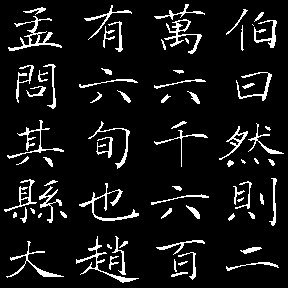 伯曰然則二
萬六千六百
有六旬也趙
孟問其縣大